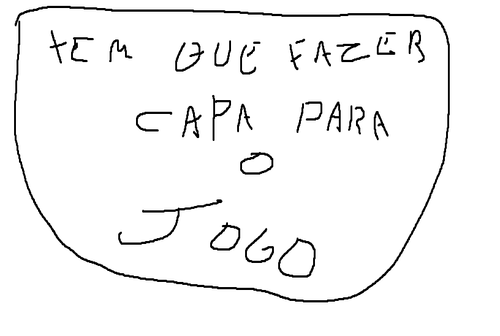 TEM QUE FAZER
CAPA PARA
O
JOGO